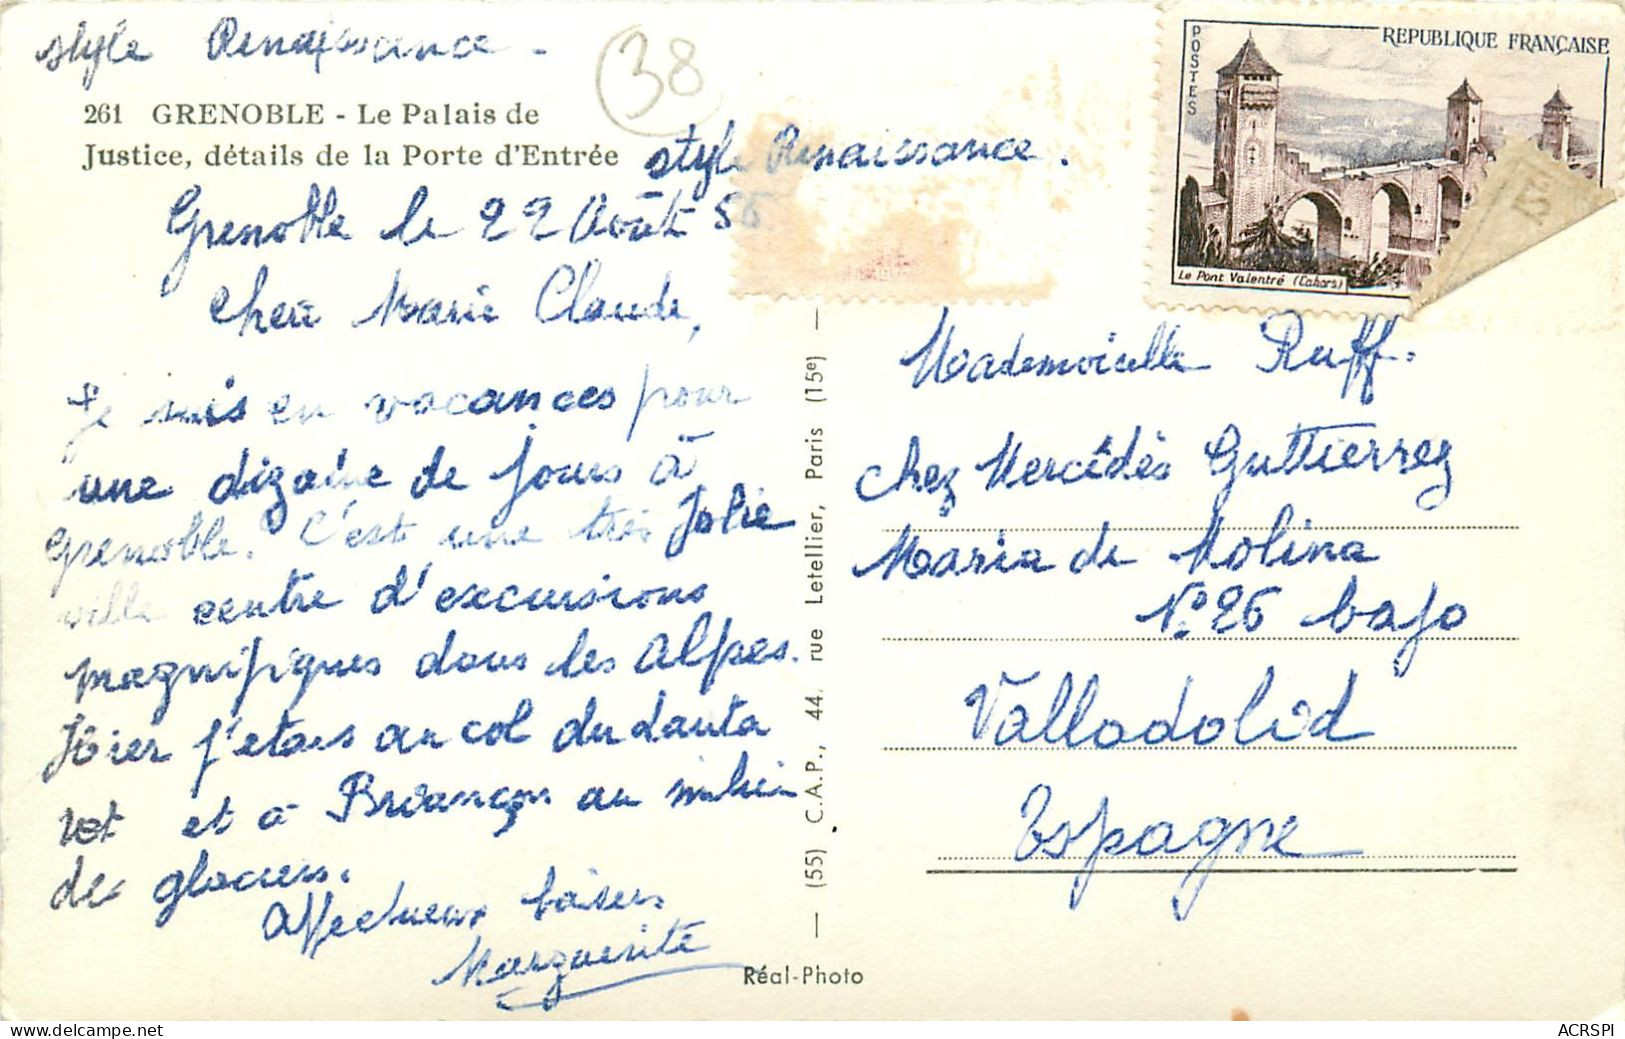 style Renaissance -
38
261 GRENOBLE - Le Palais de
Justice, détails de la Porte d'Entrée
style Renaissance.
Grenoble le 22 Août 55
Chère Marie Claude,
Je suis en vacances pour
une dizaine de jours à
Grenoble. C'est une très Jolie
ville centre d'excursions
magnifiques dans les Alpes.
Hier j'étais au col du dauta
ret et à Briançon au milieu
des glaciers.
Affectueux baisers
Marguerite
(55) C.A.P., 44, rue Letellier, Paris (15e)
Réal-Photo
POSTES
REPUBLIQUE FRANÇAISE
Le Pont Valentré (Cahors)
Mademoiselle Ruff.
chez Mercédès Guttierrez
Maria de Molina
No 26 bajo
Valladolid
Espagne
ACRSPI